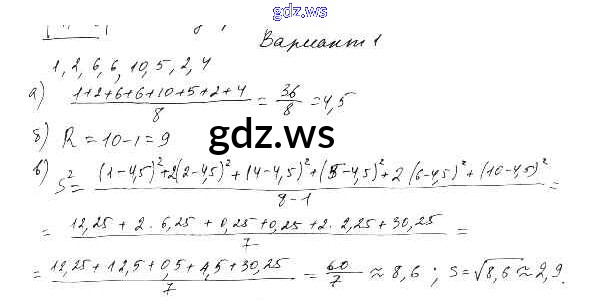 gdz.ws
Вариант 1
1, 2, 6, 6, 10, 5, 2, 4
а) (1+2+6+6+10+5+2+4)/8 = 36/8 = 4,5
б) R = 10-1 = 9
gdz.ws
в) S² = ((1-4,5)²+2(2-4,5)²+(4-4,5)²+(5-4,5)²+2(6-4,5)²+(10-4,5)²)/(8-1) =
= (12,25 + 2·6,25 + 0,25 + 0,25 + 2·2,25 + 30,25)/7 =
= (12,25 + 12,5 + 0,5 + 4,5 + 30,25)/7 = 60/7 ≈ 8,6 ; S = √8,6 ≈ 2,9.